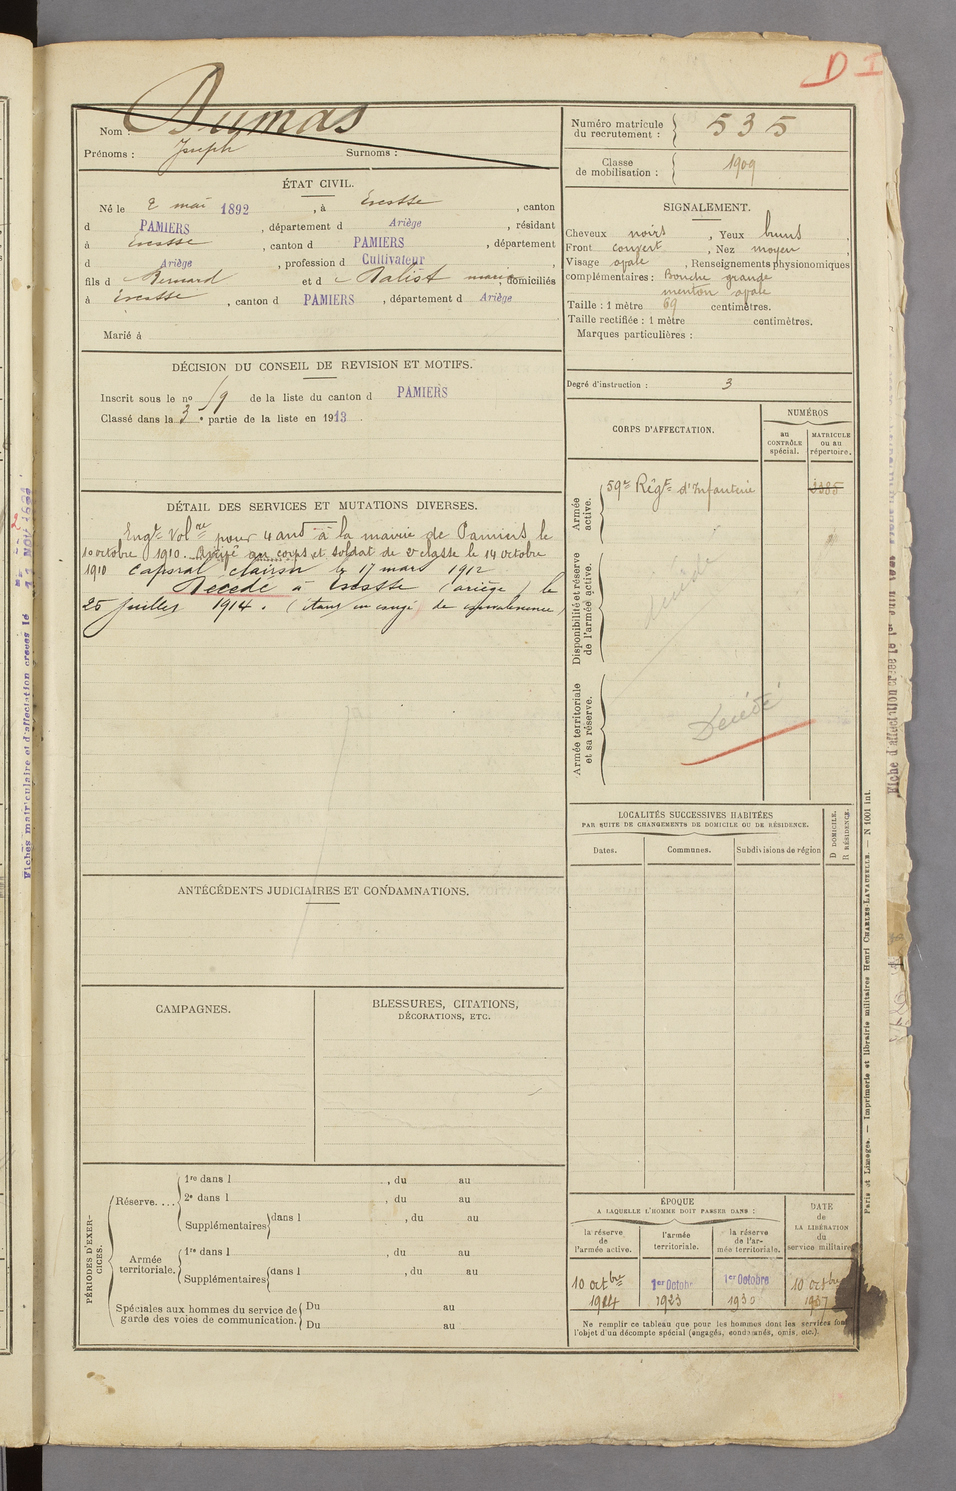 D I
Nom : Dumas
Prénoms : Joseph Surnoms :
Numéro matricule du recrutement : 535
Classe de mobilisation : 1909
ÉTAT CIVIL.
Né le 2 mai 1892, à Escosse, canton
d PAMIERS, département d Ariège, résidant
à Escosse, canton d PAMIERS, département
d Ariège, profession d Cultivateur,
fils d Bernard et d Baliste marie, domiciliés
à Escosse, canton d PAMIERS, département d Ariège
Marié à
SIGNALEMENT.
Cheveux noirs, Yeux bruns,
Front couvert, Nez moyen
Visage ovale, Renseignements physionomiques
complémentaires : Bouche grande
menton ovale
Taille : 1 mètre 69 centimètres.
Taille rectifiée : 1 mètre centimètres.
Marques particulières :
DÉCISION DU CONSEIL DE REVISION ET MOTIFS.
Inscrit sous le no 59 de la liste du canton d PAMIERS
Classé dans la 3e partie de la liste en 1913.
Degré d'instruction : 3
CORPS D'AFFECTATION.
NUMÉROS
au CONTRÔLE spécial.
MATRICULE ou au répertoire.
Armée active.
59e Régt d'Infanterie
Disponibilité et réserve de l'armée active.
décédé
Armée territoriale et sa réserve.
Décédé
DÉTAIL DES SERVICES ET MUTATIONS DIVERSES.
Engt Volre pour 4 ans à la mairie de Pamiers le
10 octobre 1910. Arrivé au corps et soldat de 2e classe le 14 octobre
1910 Caporal clairon le 17 mars 1912
Décédé à Escosse (ariège) le
25 juillet 1914. (étant en congé de convalescence)
ANTÉCÉDENTS JUDICIAIRES ET CONDAMNATIONS.
LOCALITÉS SUCCESSIVES HABITÉES
PAR SUITE DE CHANGEMENTS DE DOMICILE OU DE RÉSIDENCE.
Dates. Communes. Subdivisions de région
D DOMICILE.
R RÉSIDENCE.
CAMPAGNES.
BLESSURES, CITATIONS,
DÉCORATIONS, ETC.
PÉRIODES D'EXERCICES.
Réserve....
1re dans l , du au
2e dans l , du au
Supplémentaires dans l , du au
Armée territoriale.
1re dans l , du au
Supplémentaires dans l , du au
Spéciales aux hommes du service de garde des voies de communication.
Du au
Du au
ÉPOQUE
A LAQUELLE L'HOMME DOIT PASSER DANS :
la réserve de l'armée active.
l'armée territoriale.
la réserve de l'armée territoriale.
DATE de LA LIBÉRATION du service militaire
10 octbre 1914
1er Octobre 1923
1er Octobre 1930
10 octbre 1937
Ne remplir ce tableau que pour les hommes dont les services font
l'objet d'un décompte spécial (engagés, condamnés, omis, etc.).
Paris et Limoges. — Imprimerie et librairie militaires Henri CHARLES-LAVAUZELLE. — N 1001 int.
Fiches matriculaire et d'affectation créées le